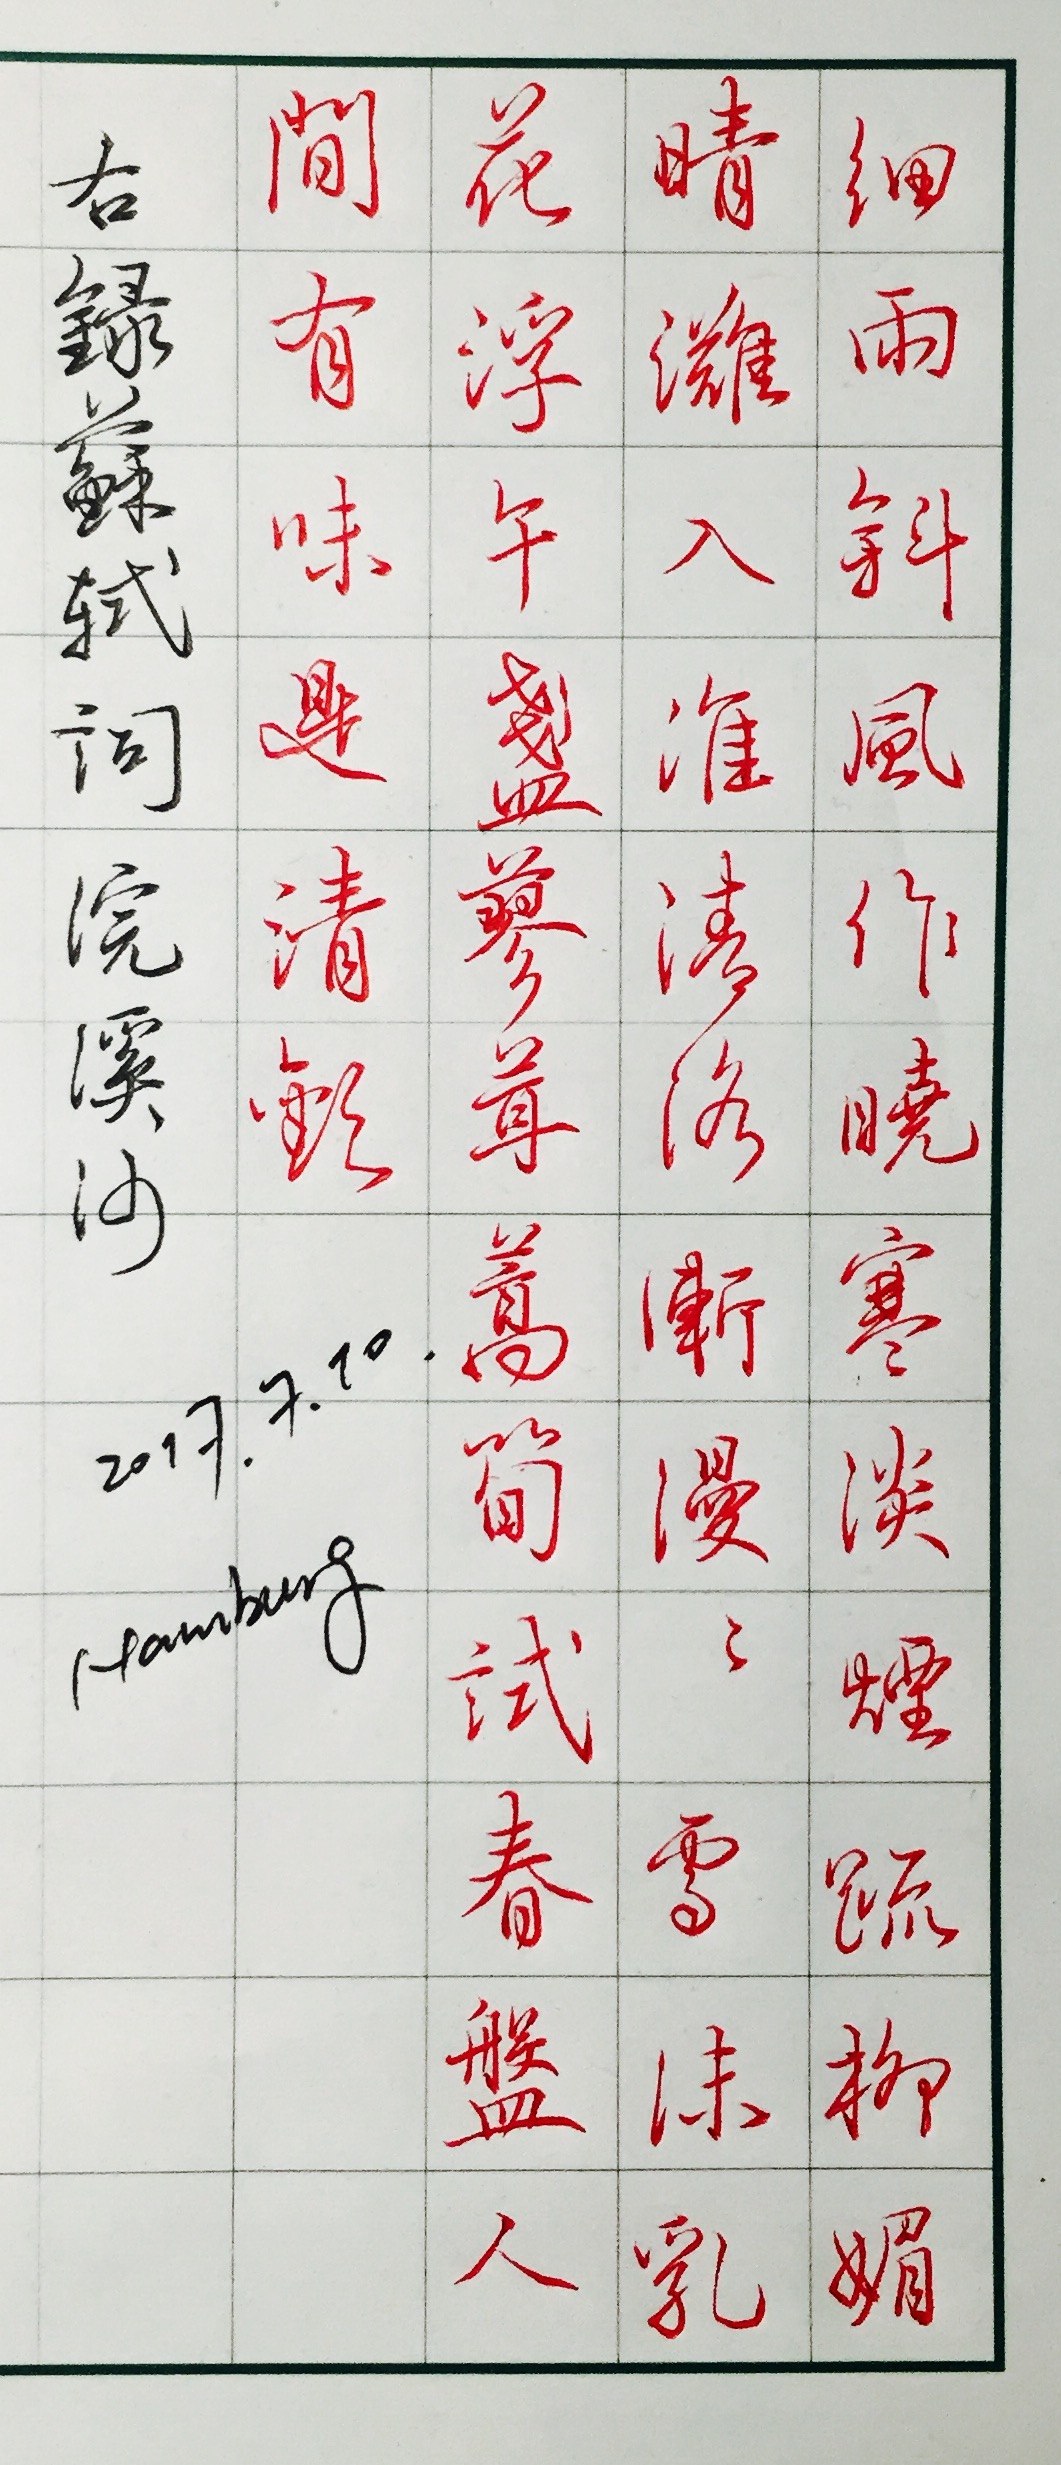 細雨斜風作曉寒淡煙疏柳媚
晴灘入淮清洛漸漫〻雪沫乳
花浮午盞蓼茸蒿筍試春盤人
間有味是清歡
右錄蘇軾詞浣溪沙
2017.7.10.
Hamburg